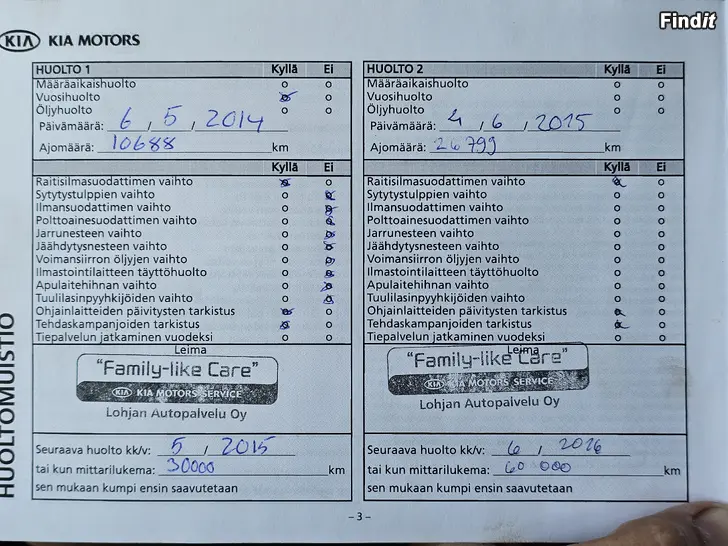 Findit
KIA KIA MOTORS
HUOLTOMUISTIO
HUOLTO 1 Kyllä Ei
Määräaikaishuolto o o
Vuosihuolto o
Öljyhuolto o o
Päivämäärä: 6 , 5 , 2014
Ajomäärä: 10688 km
Kyllä Ei
Raitisilmasuodattimen vaihto o
Sytytystulppien vaihto o
Ilmansuodattimen vaihto o
Polttoainesuodattimen vaihto o
Jarrunesteen vaihto o
Jäähdytysnesteen vaihto o
Voimansiirron öljyjen vaihto o
Ilmastointilaitteen täyttöhuolto o
Apulaitehihnan vaihto o
Tuulilasinpyyhkijöiden vaihto o
Ohjainlaitteiden päivitysten tarkistus o
Tehdaskampanjoiden tarkistus o
Tiepalvelun jatkaminen vuodeksi o o
Leima
"Family-like Care"
KIA KIA MOTORS SERVICE
Lohjan Autopalvelu Oy
Seuraava huolto kk/v: 5 , 2015
tai kun mittarilukema: 30000 km
sen mukaan kumpi ensin saavutetaan
HUOLTO 2 Kyllä Ei
Määräaikaishuolto o o
Vuosihuolto o o
Öljyhuolto o o
Päivämäärä: 4 , 6 , 2015
Ajomäärä: 26799 km
Kyllä Ei
Raitisilmasuodattimen vaihto o
Sytytystulppien vaihto o o
Ilmansuodattimen vaihto o o
Polttoainesuodattimen vaihto o o
Jarrunesteen vaihto o o
Jäähdytysnesteen vaihto o o
Voimansiirron öljyjen vaihto o o
Ilmastointilaitteen täyttöhuolto o o
Apulaitehihnan vaihto o o
Tuulilasinpyyhkijöiden vaihto o o
Ohjainlaitteiden päivitysten tarkistus o
Tehdaskampanjoiden tarkistus o
Tiepalvelun jatkaminen vuodeksi o o
Leima
"Family-like Care"
KIA KIA MOTORS SERVICE
Lohjan Autopalvelu Oy
Seuraava huolto kk/v: 6 , 2016
tai kun mittarilukema: 60 000 km
sen mukaan kumpi ensin saavutetaan
– 3 –